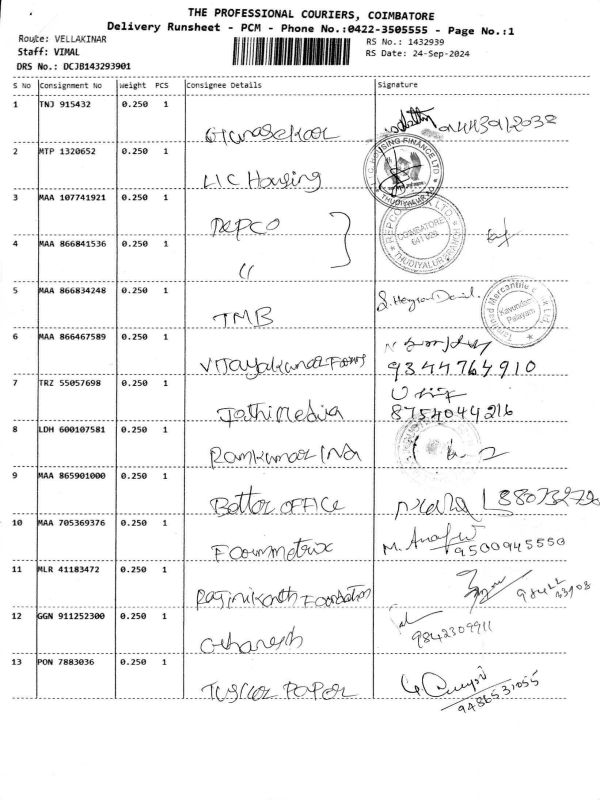 THE PROFESSIONAL COURIERS, COIMBATORE
Delivery Runsheet - PCM - Phone No.:0422-3505555 - Page No.:1
Route: VELLAKINAR
RS No.: 1432939
Staff: VIMAL
RS Date: 24-Sep-2024
DRS No.: DCJB143293901
S No Consignment No Weight PCS Consignee Details Signature
1 TNJ 915432 0.250 1
2 MTP 1320652 0.250 1
LIC Housing
HOUSING FINANCE LTD
3 MAA 107741921 0.250 1
REPCO
COIMBATORE
641 029
THUDIYALUR BRANCH
4 MAA 866841536 0.250 1
"
5 MAA 866834248 0.250 1
TMB
Tamilnad Mercantile Bank Ltd.
Kavundam Palayam
6 MAA 866467589 0.250 1
Vijayakumar Farms
9344764910
7 TRZ 55057698 0.250 1
Jothi Media
8754044216
8 LDH 600107581 0.250 1
Ramkumar IND
9 MAA 865901000 0.250 1
Better OFFICE
10 MAA 705369376 0.250 1
Formmetrix
9500945550
11 MLR 41183472 0.250 1
Rajinikanth Foundation
12 GGN 911252300 0.250 1
9842309911
13 PON 7883036 0.250 1
Paper
9486531055